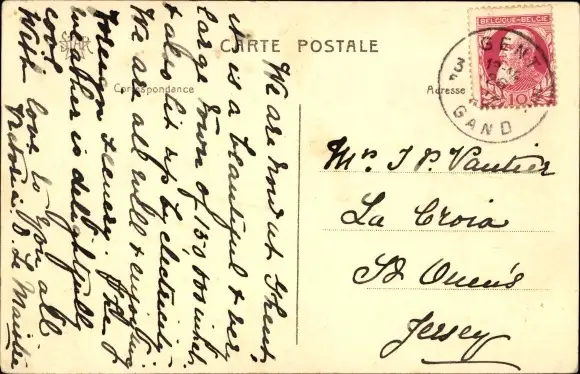 STAR
CARTE POSTALE
Correspondance
Adresse
BELGIQUE-BELGIE
10
GENT
GAND
We are now at Ghent,
it is a beautiful & very
large town of 150 000 inhbt
& also lit up by electricity.
We are all well & enjoying
scenery. The
weather is delightfully
cool
With love to you all
Le Maistre
Mr J P. Vautier
La Croix
St Ouen's
Jersey